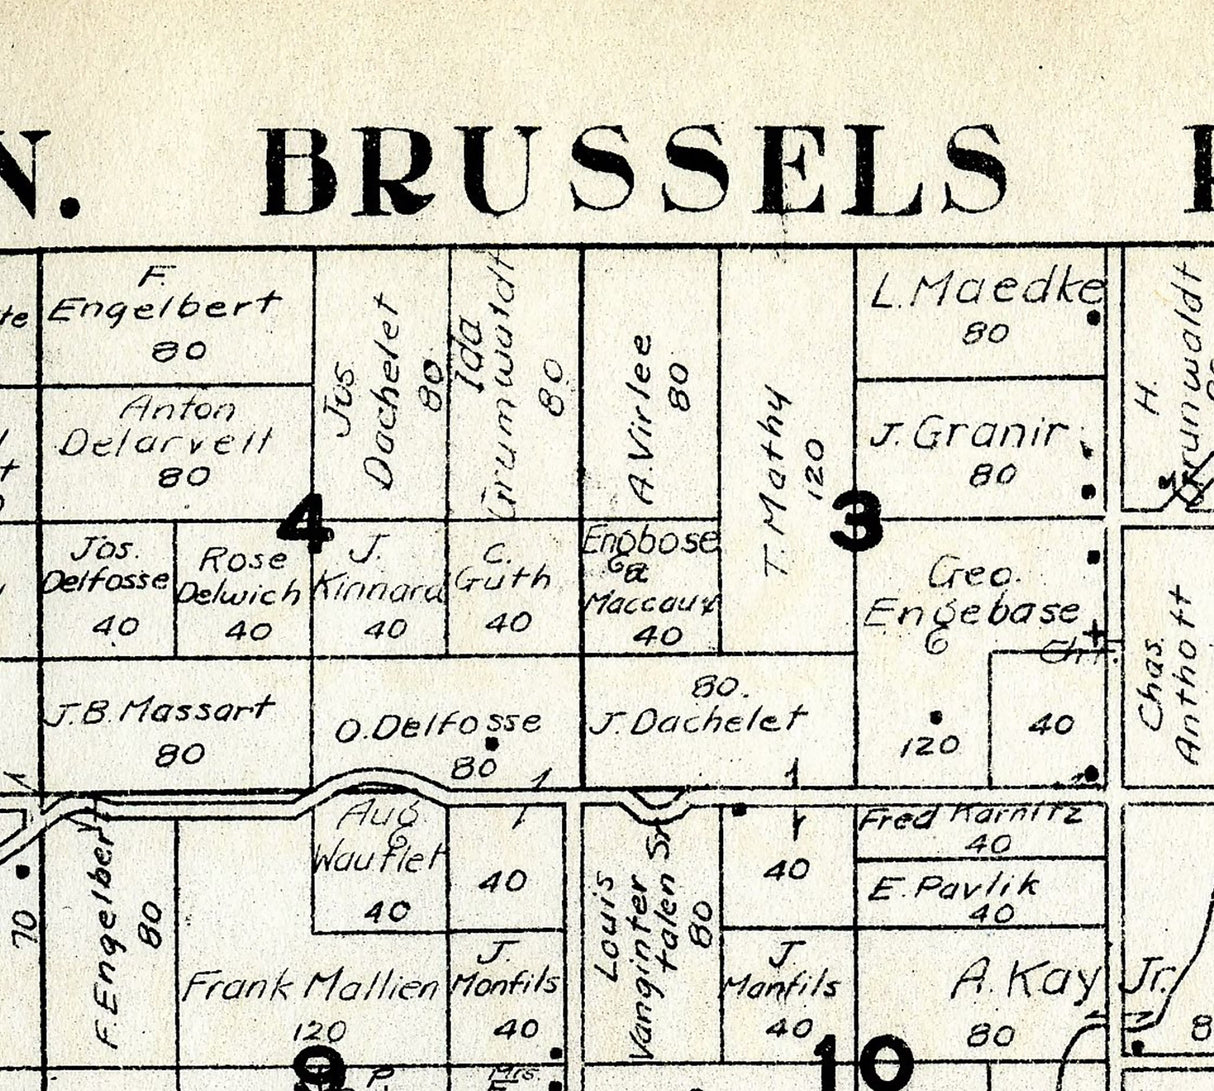 N. BRUSSELS
F.
Engelbert
80
Jos
Dachelet
80
Ida
Grumwaldt
80
A. Virlee
80
T. Mathy
120
L. Maedke
80
H.
Grunwaldt
Anton
Delarvell
80
J. Granir
80
4
3
Jos.
Delfosse
40
Rose
Delwich
40
J.
Kinnard
40
C.
Guth
40
Engbose
&
Maccaux
40
Geo.
Engebase
120
Ch.
40
Chas.
Anthott
J.B. Massart
80
O. Delfosse
80
80.
J. Dachelet
70
F. Engelber
80
Aug
Wautlet
40
40
Louis
Vanginter
talen Sr.
80
40
Fred Karnitz
40
E. Pavlik
40
Frank Mallien
120
J.
Monfils
40
J
Manfils
40
A. Kay Jr.
80
8
9
10
P.
Mrs
E.